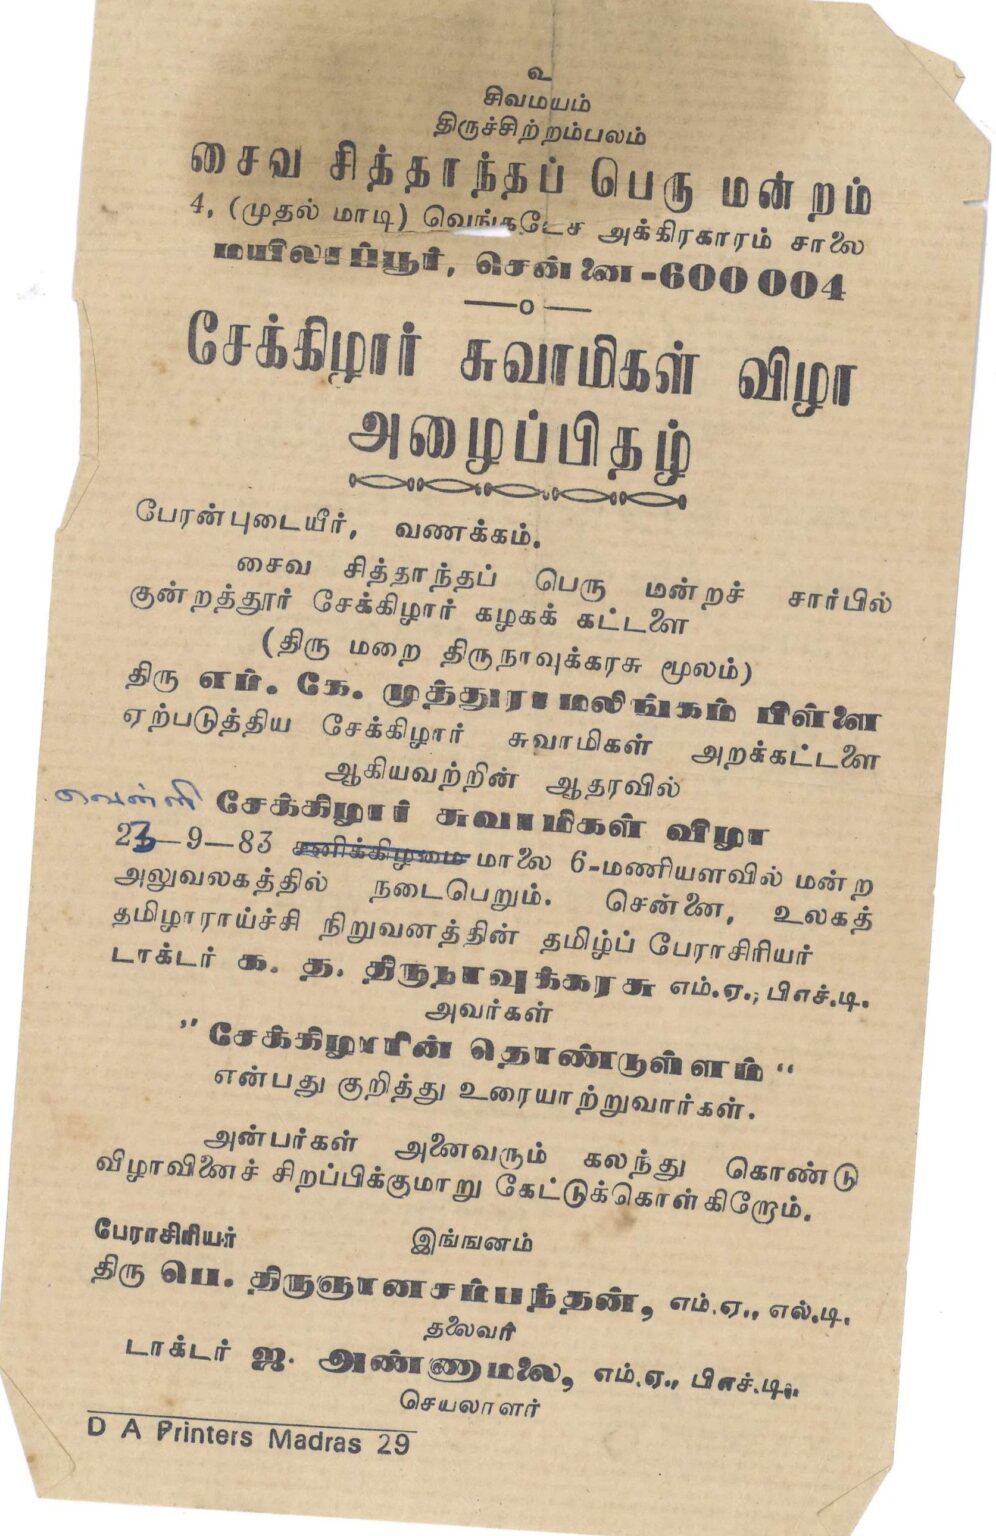 உ
சிவமயம்
திருச்சிற்றம்பலம்
சைவ சித்தாந்தப் பெரு மன்றம்
4, (முதல் மாடி) வெங்கடேச அக்கிரகாரம் சாலை
மயிலாப்பூர், சென்னை-600 004
சேக்கிழார் சுவாமிகள் விழா
அழைப்பிதழ்
பேரன்புடையீர், வணக்கம்.
சைவ சித்தாந்தப் பெரு மன்றச் சார்பில்
குன்றத்தூர் சேக்கிழார் கழகக் கட்டளை
(திரு மறை திருநாவுக்கரசு மூலம்)
திரு எம். கே. முத்துராமலிங்கம் பிள்ளை
ஏற்படுத்திய சேக்கிழார் சுவாமிகள் அறக்கட்டளை
ஆகியவற்றின் ஆதரவில்
வெள்ளி சேக்கிழார் சுவாமிகள் விழா
23-9-83 சனிக்கிழமை மாலை 6-மணியளவில் மன்ற
அலுவலகத்தில் நடைபெறும். சென்னை, உலகத்
தமிழாராய்ச்சி நிறுவனத்தின் தமிழ்ப் பேராசிரியர்
டாக்டர் க. த. திருநாவுக்கரசு எம்.ஏ., பிஎச்.டி.
அவர்கள்
"சேக்கிழாரின் தொண்டுள்ளம்"
என்பது குறித்து உரையாற்றுவார்கள்.
அன்பர்கள் அனைவரும் கலந்து கொண்டு
விழாவினைச் சிறப்பிக்குமாறு கேட்டுக்கொள்கிறோம்.
பேராசிரியர் இங்ஙனம்
திரு பெ. திருஞானசம்பந்தன், எம்.ஏ., எல்.டி.
தலைவர்
டாக்டர் ஐ. அண்ணாமலை, எம்.ஏ., பிஎச்.டி.,
செயலாளர்
D A Printers Madras 29